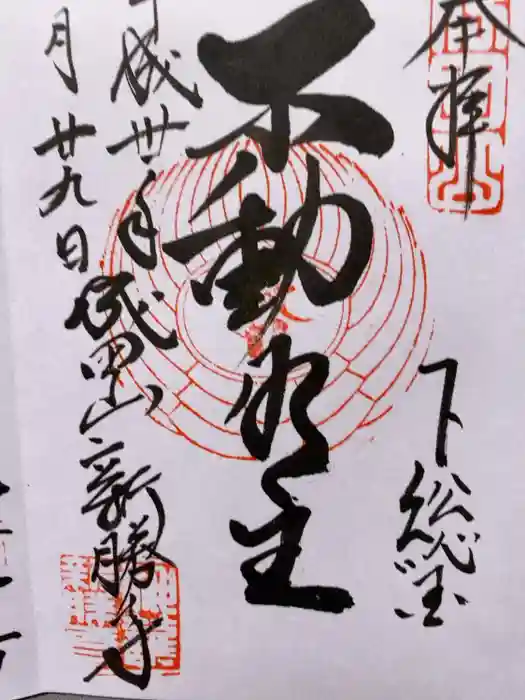 奉拝
下総国
不動明王
平成卅年
月廿九日
成田山新勝寺